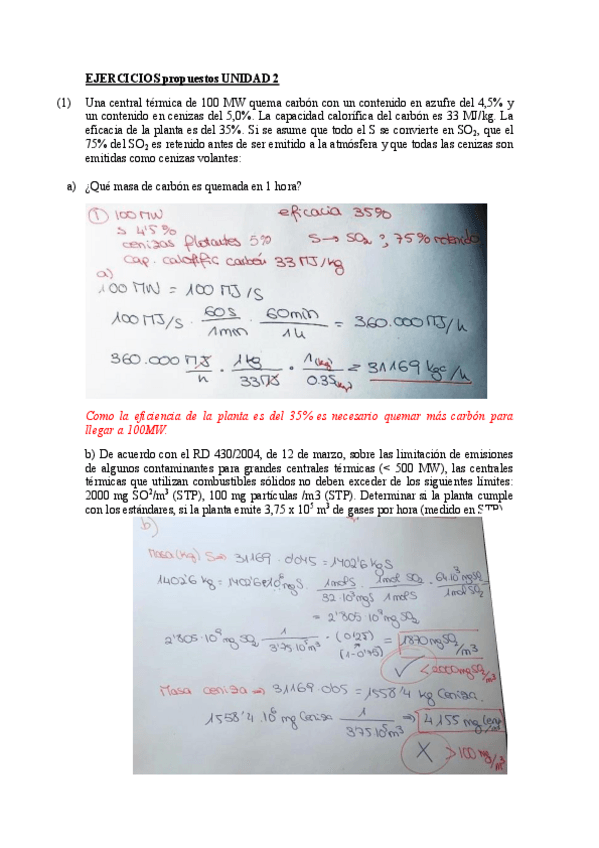 EJERCICIOS propuestos UNIDAD 2
(1) Una central térmica de 100 MW quema carbón con un contenido en azufre del 4,5% y
un contenido en cenizas del 5,0%. La capacidad calorífica del carbón es 33 MJ/kg. La
eficacia de la planta es del 35%. Si se asume que todo el S se convierte en SO₂, que el
75% del SO₂ es retenido antes de ser emitido a la atmósfera y que todas las cenizas son
emitidas como cenizas volantes:
a) ¿Qué masa de carbón es quemada en 1 hora?
① 100 MW eficacia 35%
S 4'5%
cenizas flotantes 5% S → SO₂ ; 75% retenido
Cap. calorífic carbón 33 MJ/kg
a)
100 MW = 100 MJ/S
100 MJ/s · 60s/1min · 60min/1h = 360.000 MJ/h
360.000 MJ/h · 1kg/33MJ · 1(kg)/0.35kg = 31169 kgc/h
Como la eficiencia de la planta es del 35% es necesario quemar más carbón para
llegar a 100MW.
b) De acuerdo con el RD 430/2004, de 12 de marzo, sobre las limitación de emisiones
de algunos contaminantes para grandes centrales térmicas (< 500 MW), las centrales
térmicas que utilizan combustibles sólidos no deben exceder de los siguientes límites:
2000 mg SO²/m³ (STP), 100 mg partículas /m3 (STP). Determinar si la planta cumple
con los estándares, si la planta emite 3,75 x 10⁵ m³ de gases por hora (medido en STP)
b)
Masa (kg) S ⇒ 31169 · 0'045 = 1402'6 kg S
1402'6 kg = 1402'6·10⁶ mg S · 1mol S/32·10³mg S · 1mol SO₂/1mol S · 64·10³mg SO₂/1mol SO₂
= 2'805 10⁹ mg SO₂
2'805·10⁹ mg SO₂ · 1/3'75 10⁵ m³ · (0'25) = 1870 mg SO₂/m³
(1-0'75)
✓ < 2000 mg SO₂/m³
Masa ceniza ⇒ 31169 · 0'05 = 1558'4 kg ceniza.
1558'4 · 10⁶ mg ceniza · 1/3'75 10⁵ m³ ⇒ 4155 mg
X > 100 mg/m³